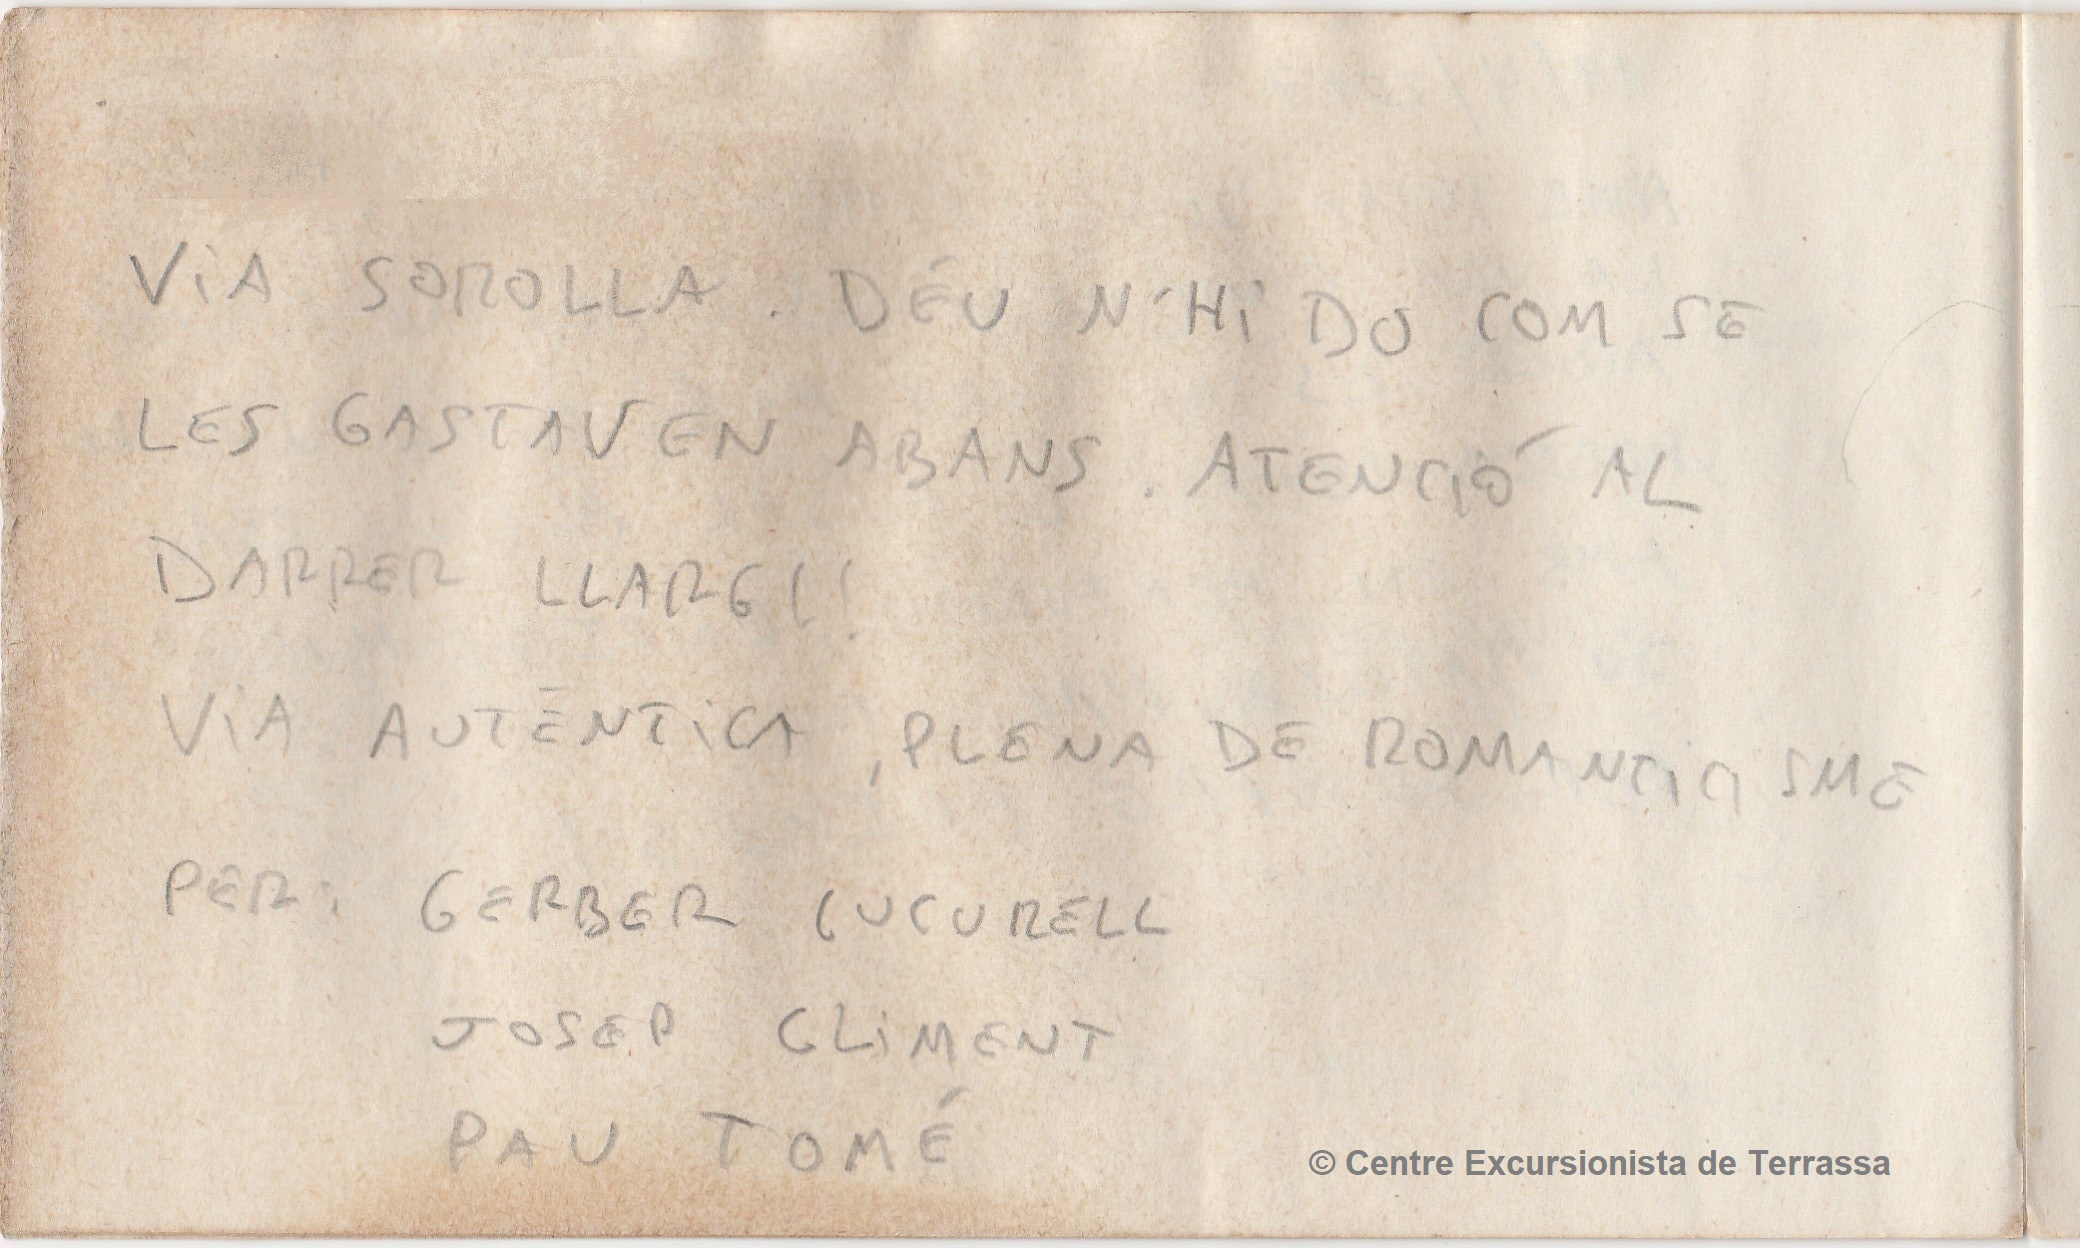 ViA SOROLLA. DÉU N'Hi DO COM SE
LES GASTAVEN ABANS. ATENCIÓ AL
DARRER LLARG!!
ViA AUTÈNTiCA, PLENA DE ROMANTICISME
PER: GERBER CUCURELL
JOSEP CLiMENT
PAU TOMÉ
© Centre Excursionista de Terrassa